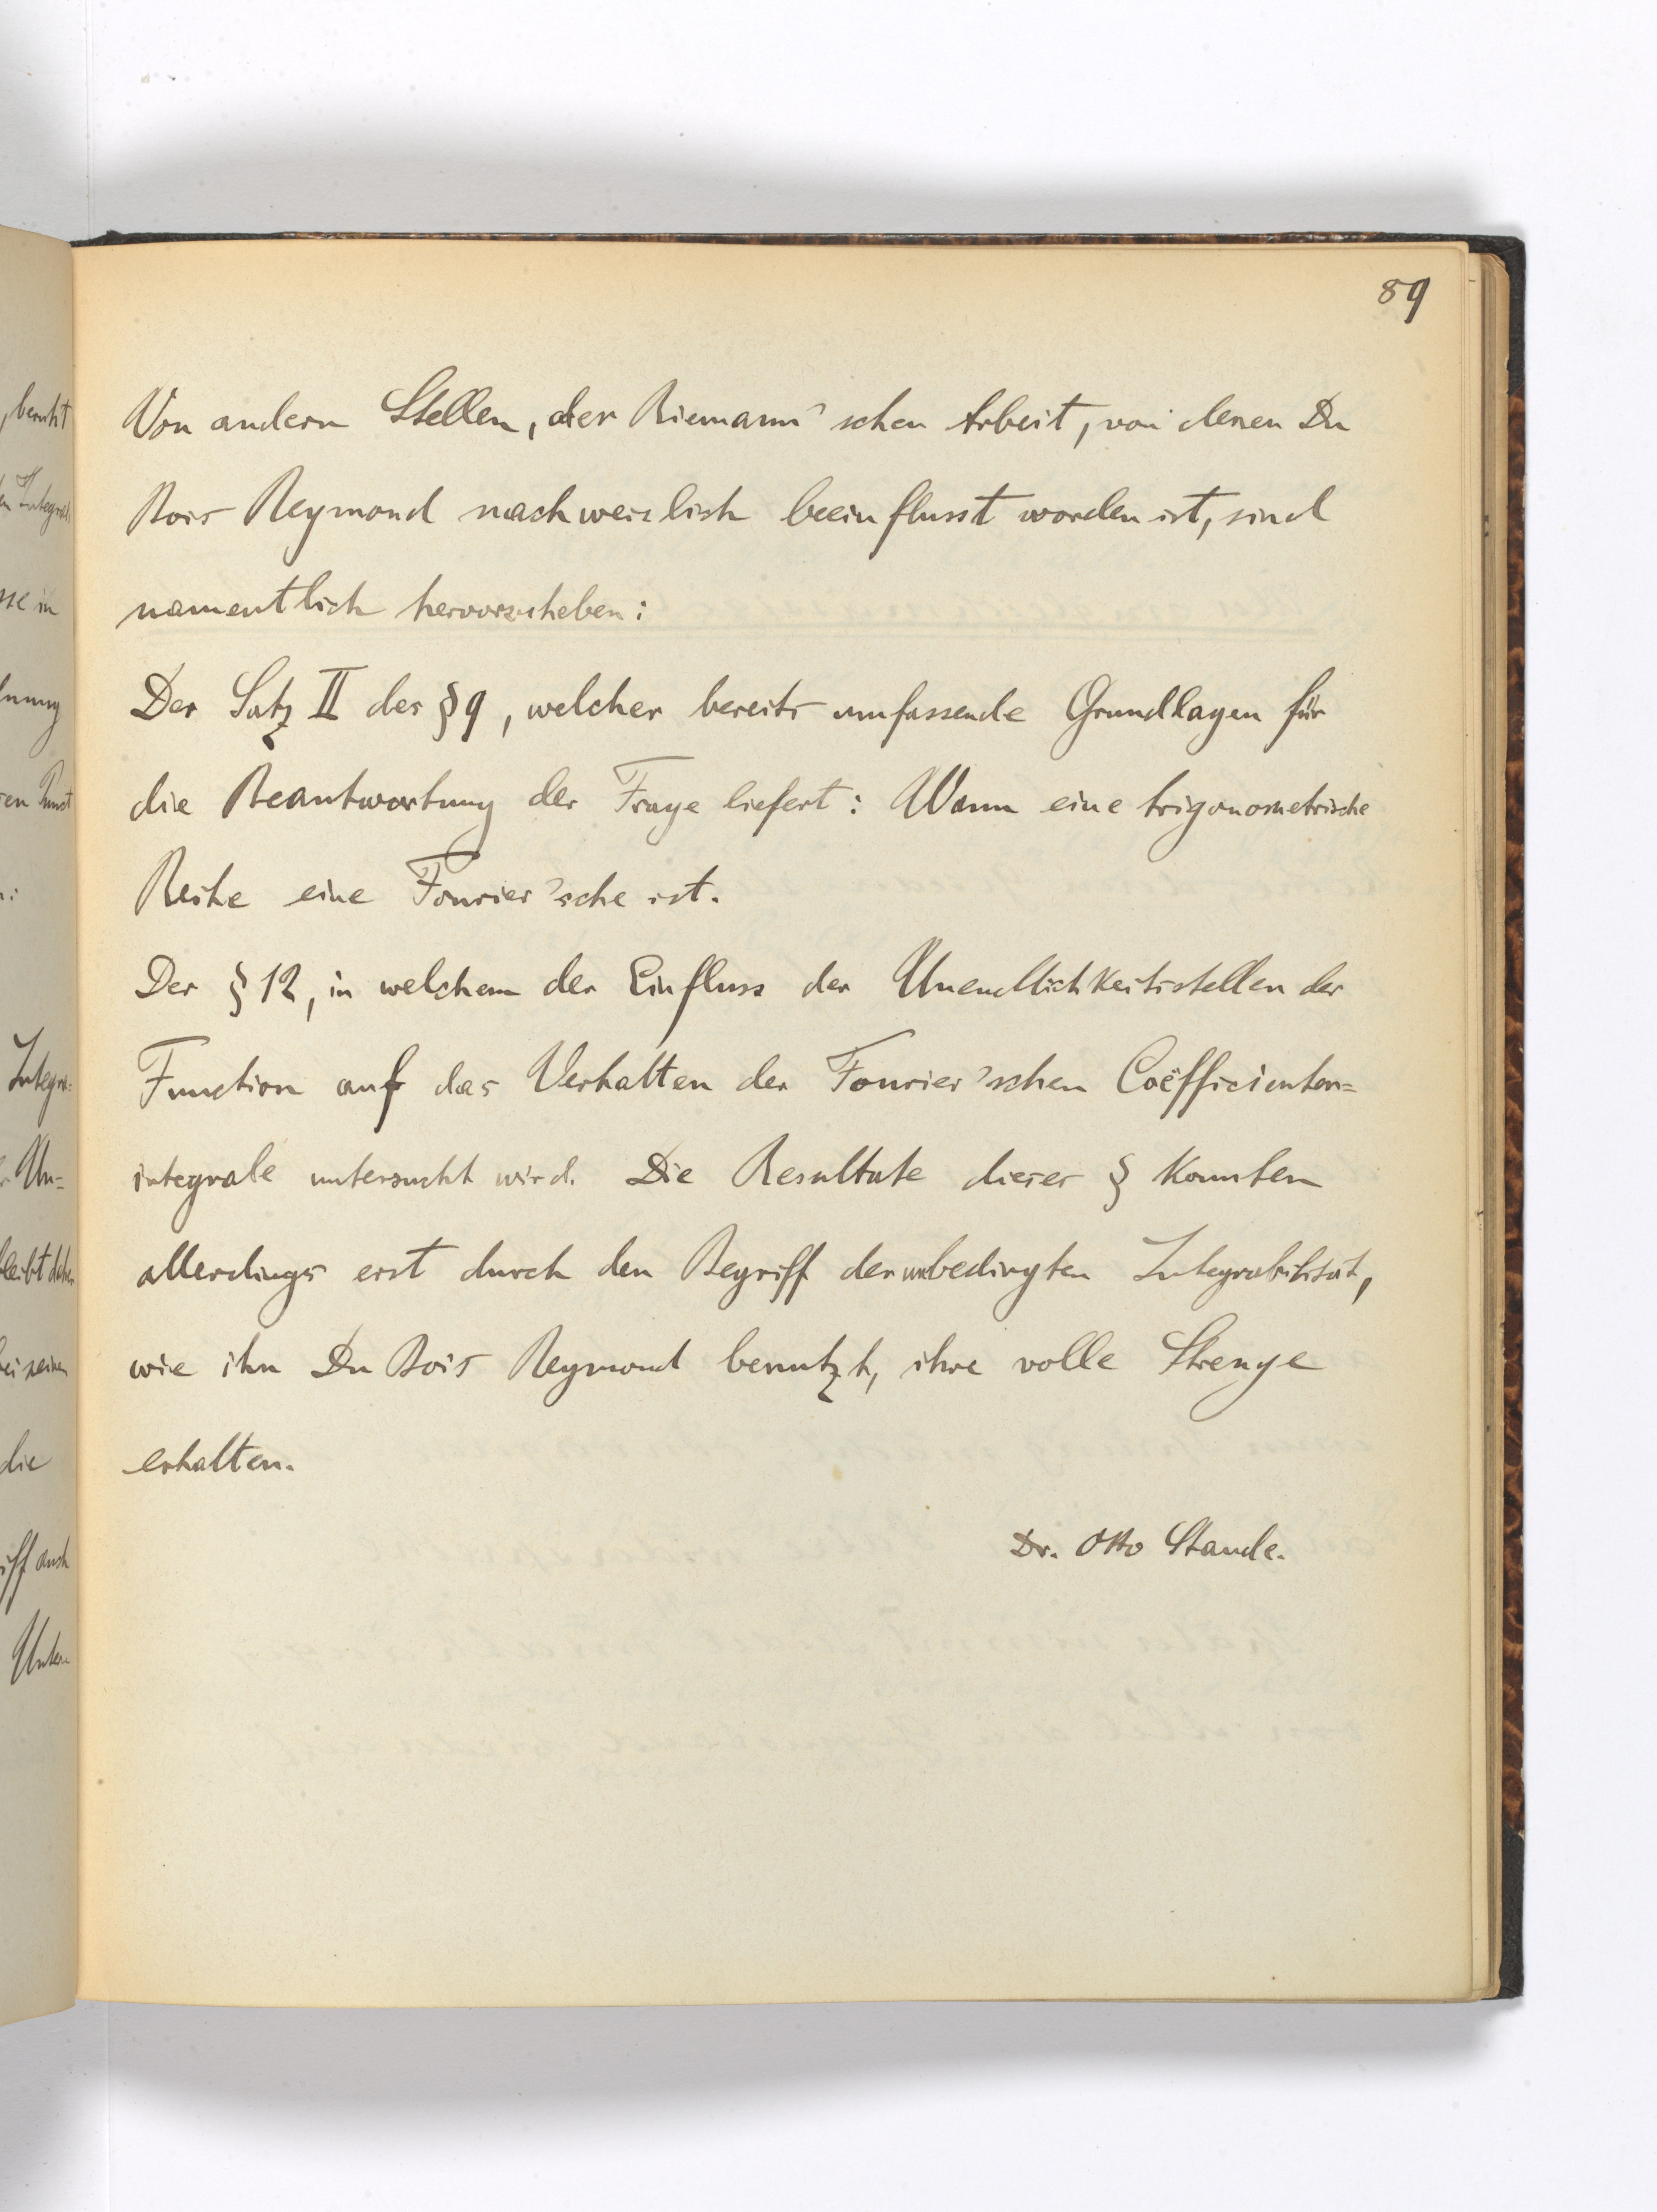 89
Von andern Stellen, der Riemann'schen Arbeit, von denen Du
Bois Reymond nachweislich beeinflusst worden ist, sind
namentlich hervorzuheben:
Der Satz II des § 9, welcher bereits umfassende Grundlagen für
die Beantwortung der Frage liefert: Wann eine trigonometrische
Reihe eine Fourier'sche ist.
Der § 12, in welchem der Einfluss der Unendlichkeitsstellen der
Function auf das Verhalten der Fourier'schen Coëfficienten=
integrale untersucht wird. Die Resultate dieses § konnten
allerdings erst durch den Begriff der unbedingten Integrabilität,
wie ihn Du Bois Reymond benutzt, ihre volle Strenge
erhalten.
Dr. Otto Staude.
beruht
sse in
Integra=
Un=
die